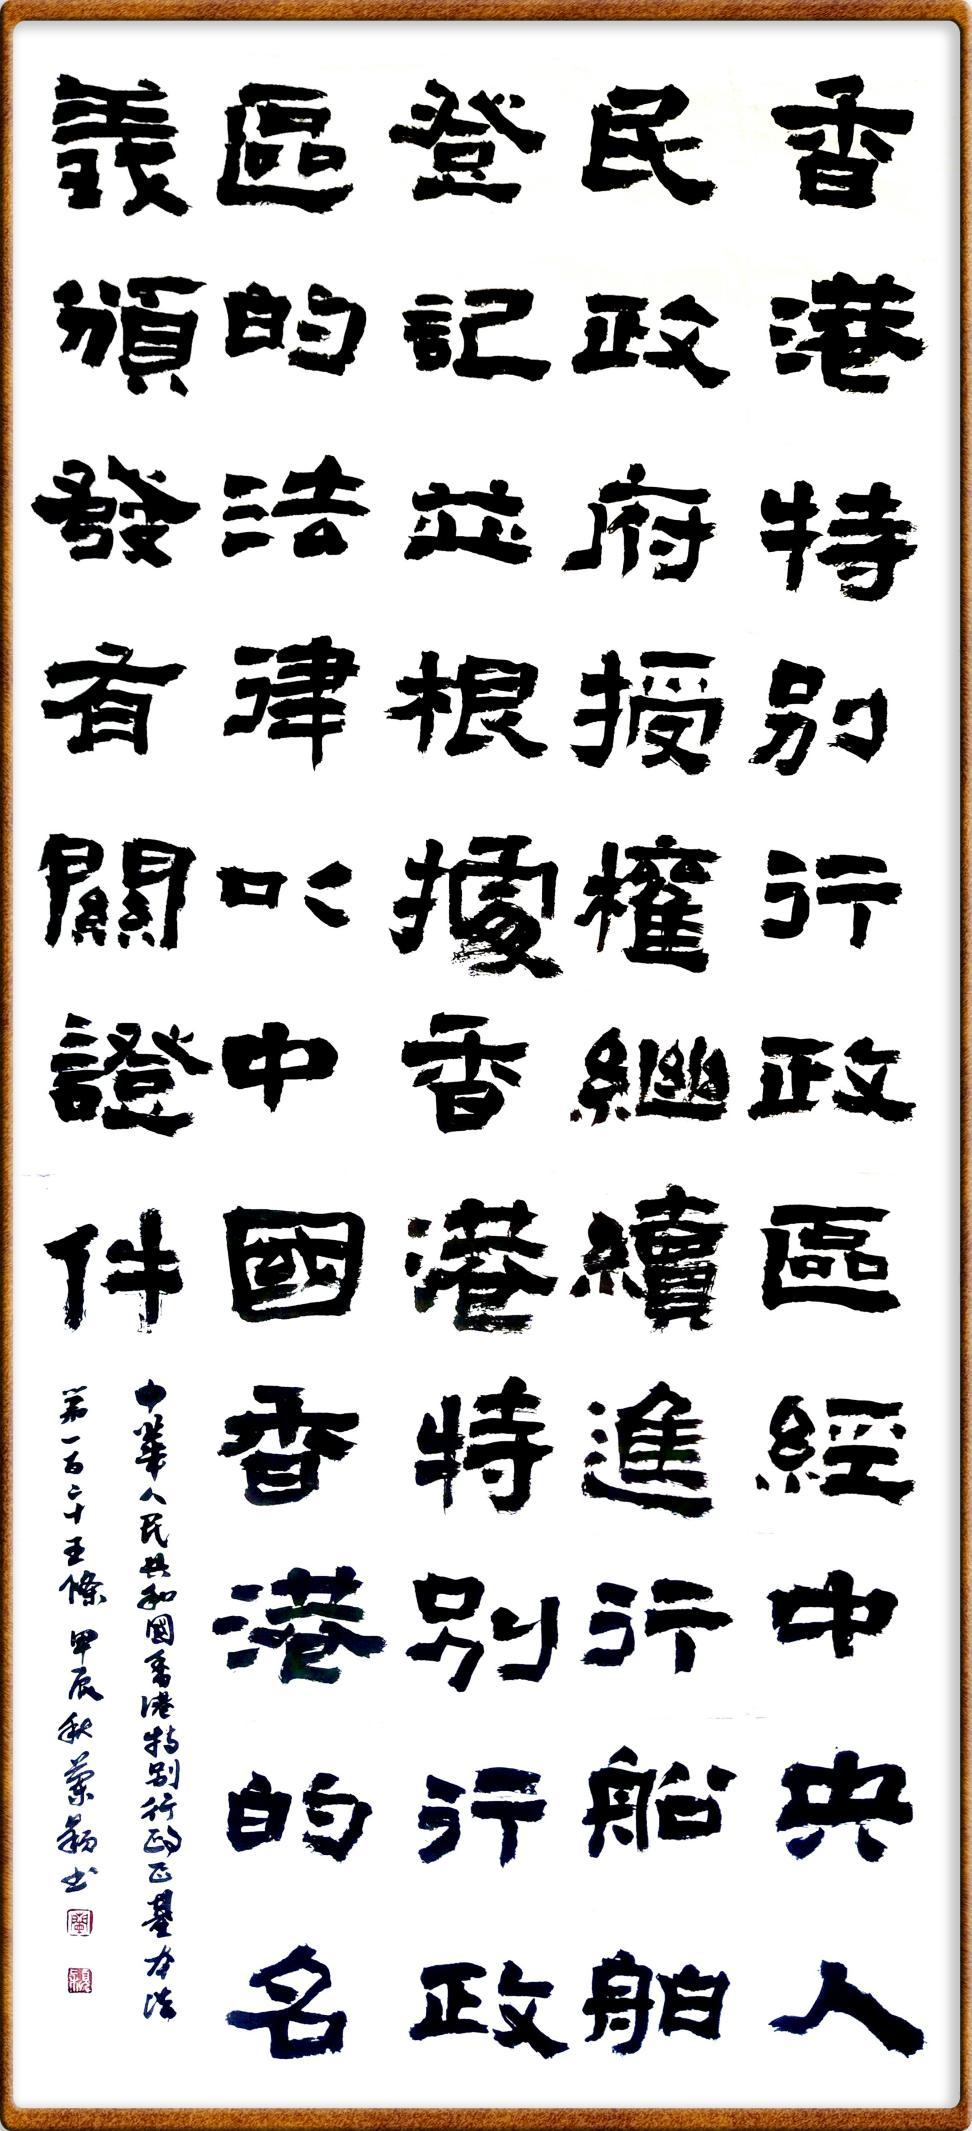 香港特別行政區經中央人
民政府授權繼續進行船舶
登記並根據香港特別行政
區的法律以中國香港的名
義頒發有關證件
中華人民共和國香港特別行政區基本法
第一百二十五條 甲辰秋 蘭穎書